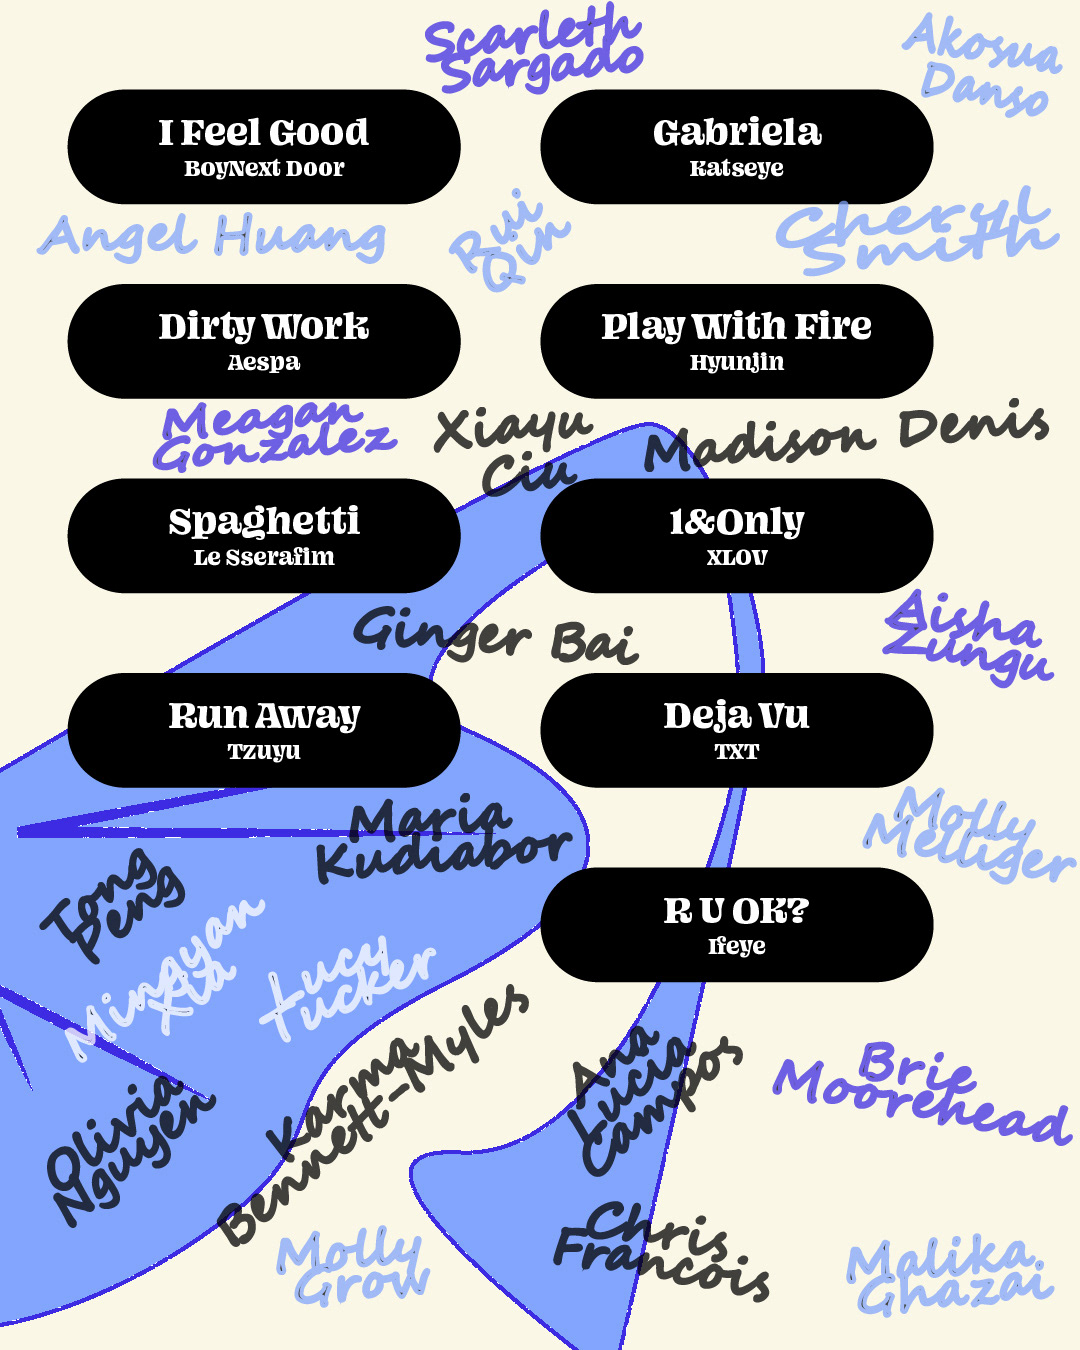 Scarleth
Sargado
Akosua
Danso
I Feel Good
BoyNext Door
Gabriela
Katseye
Angel Huang
Rui
Qin
Cheryl
Smith
Dirty Work
Aespa
Play With Fire
Hyunjin
Meagan
Gonzalez
Xiayu
Ciu
Madison Denis
Spaghetti
Le Sserafim
1&Only
XLOV
Ginger Bai
Aisha
Zungu
Run Away
Tzuyu
Deja Vu
TXT
Maria
Kudiabor
Molly
Melliger
Tong
Peng
R U OK?
Ifeye
Mingyan
Xia
Lucy
Tucker
Karma
Bennett-Myles
Ana
Lucia
Campos
Brie
Moorehead
Olivia
Nguyen
Molly
Grow
Chris
Francois
Malika
Ghazai